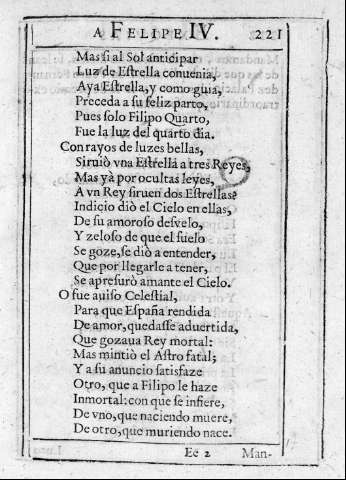 A FELIPE IV. 221
Mas si al Sol anticipar
Luz de Estrella conuenia,
Aya Estrella, y como guia,
Preceda a su feliz parto,
Pues solo Filipo Quarto,
Fue la luz del quarto dia.
Con rayos de luzes bellas,
Siruiò vna Estrella a tres Reyes,
Mas yà por ocultas leyes,
A vn Rey siruen dos Estrellas:
Indicio diò el Cielo en ellas,
De su amoroso desvelo,
Y zeloso de que el suelo
Se goze, se diò a entender,
Que por llegarle a tener,
Se apresurò amante el Cielo.
O fue auiso Celestial,
Para que España rendida
De amor, quedasse aduertida,
Que gozaua Rey mortal:
Mas mintiò el Astro fatal;
Y a su anuncio satisfaze
Otro, que a Filipo le haze
Inmortal: con que se infiere,
De vno, que naciendo muere,
De otro, que muriendo nace.
Ee 2 Man-